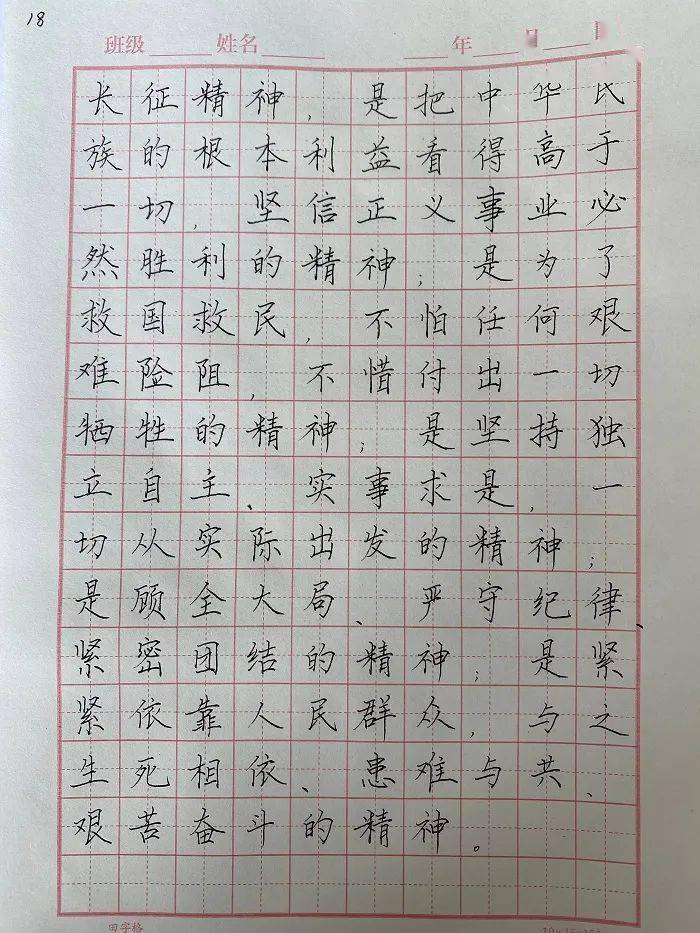 18
班级 姓名 年
长征精神，是把中华民
族的根本利益看得高于
一切，坚信正义事业必
然胜利的精神；是为了
救国救民，不怕任何艰
难险阻，不惜付出一切
牺牲的精神；是坚持独
立自主、实事求是，一
切从实际出发的精神；
是顾全大局、严守纪律、
紧密团结的精神；是紧
紧依靠人民群众，与之
生死相依、患难与共、
艰苦奋斗的精神。
田字格